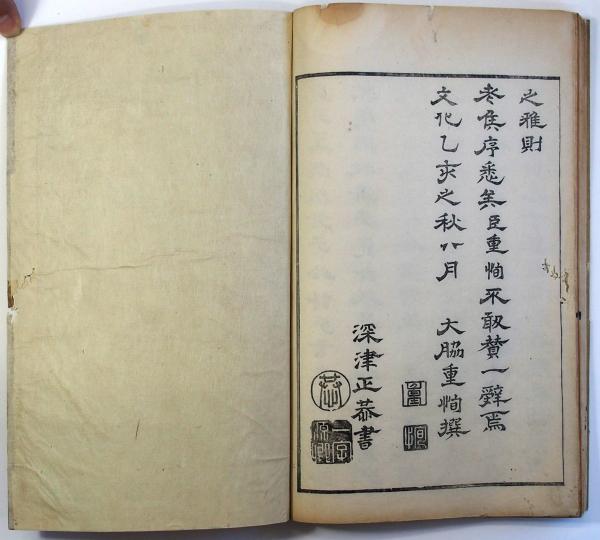 之雅則
老矦序悉矣臣重恂不敢賛一辭焉
文化乙亥之秋八月 大脇重恂撰
重
恂
深津正恭書
恭